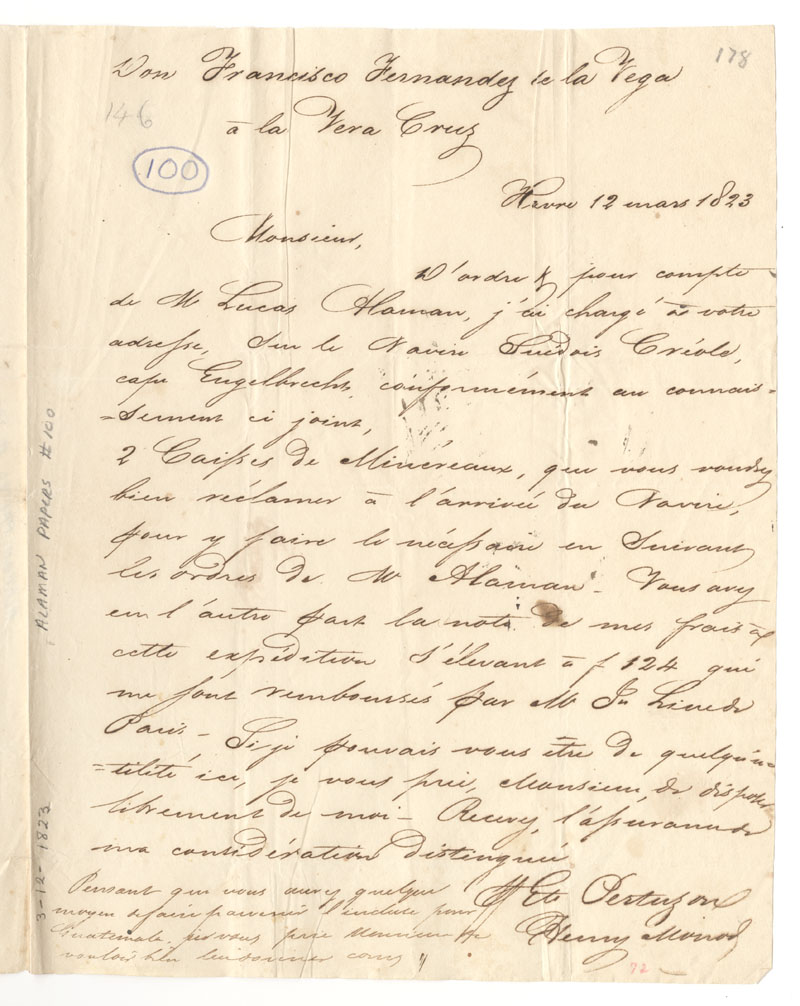 178
Don Francisco Fernandez de la Vega
146
à la Vera Cruz
100
Havre 12 mars 1823
Monsieur,
D'ordre & pour compte
de Mr Lucas Alaman, j'ai chargé à votre
adresse, sur le Navire Suédois Créole,
cape Engelbrecht, conformément au connais-
=sement ci joint,
2 Caisses de Minéreaux, que vous voudrez
bien réclamer à l'arrivée du Navire,
pour y faire le nécessaire en suivant
les ordres de Mr Alaman - Vous avez
en l'autre part la note de mes frais à
cette expédition s'élevant à f 124 qui
me sont remboursés par Mr Jn de
Paris - Si je pouvais vous être de quelqu'u-
=tilité ici, je vous prie, Monsieur, de disposer
librement de moi - Recevez l'assurance de
ma considération distinguée
Pensant que vous aurez quelque
moyen de faire parvenir l'incluse pour
Guatemala, je vous prie Monsieur de
vouloir bien lui donner cours
Pertuzon
Henry Monod
82
ALAMAN PAPERS #100
3-12-1823